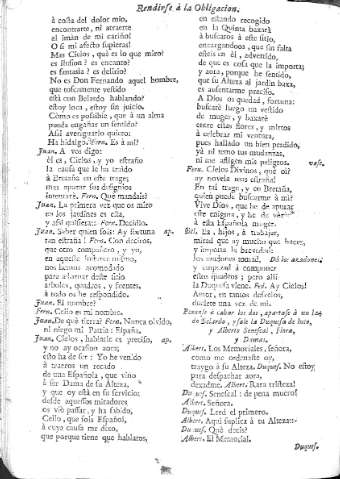 Rendirse à la Obligacion.
à costa del dolor mio,
encontrarte, ni atraerte
el imàn de mi cariño!
O si mi afecto supieras!
Mas Cielos, què es lo que miro?
es ilusion? es encanto?
es fantasia? es delirio?
No es Don Fernando aquel hombre,
que toscamente vestido
està con Belardo hablando?
estoy loca, estoy sin juicio.
Còmo es possible, que à un alma
pueda engañar un sentido?
Assi averiguarlo quiero:
Ha hidalgo. Fern. Es à mi?
Juan. A vos digo:
èl es, Cielos, y yo estraño
la causa que le ha traìdo
à Bretaña en este trage;
mas apurar sus designios
intentarè. Fern. Què mandais?
Juan. La primera vez que os miro
en los jardines es esta,
y assi quisiera: Fern. Decidlo.
Juan. Saber quien sois: Ay fortuna ap.
tan estraña! Fern. Con deciros,
que otro compañero, y yo,
en aqueste
nos hemos acomodado
para adornar deste sitio
arboles, quadros, y fuentes,
à todo os he respondido.
Juan. El nombre?
Fern. Celio es mi nombre.
Juan. De què tierra? Fern. Nunca olvido,
ni niego mi Patria: España.
Juan. Cielos, hablarle es preciso, ap.
y no ay ocasion aora;
esto ha de ser: Yo he venido
à traeros un recado
de una Española, que vino
à ser Dama de su Alteza,
y que oy està en su servicio;
desde aquessos miradores
os viò passar, y ha sabido,
Celio, que sois Español,
à cuya causa me
que porque tiene que hablaros,
en estando recogido
en la Quinta baxarà
à buscaros à este sitio,
encargandoos, que sin falta
esteis en èl, advertido,
de que es cosa que la importa;
y aora, porque he sentido,
que su Alteza al jardin baxa,
es ausentarme preciso.
A Dios os quedad, fortuna:
buscarè luego un vestido
de muger, y baxarè
entre estas flores, y mirtos
à celebrar mi ventura,
pues hallado un bien perdido,
yà ni temo tus mudanzas,
ni me afligen mis peligros. vase.
Fern. Cielos Divinos, què oì?
ay novela mas estraña!
En tal trage, y en Bretaña,
quien puede buscarme à mi?
Vive Dios, que he de apurar
este enigma, y he de vèr
à esta Española muger.
Bel. Ea, hijos, à trabajar,
mirad que ay mucho que hacer,
y importa la brevedad:
los azadones tomad, Dà los azadones.
y empezad à componer
estos quadros; pero allì
la Duquesa viene. Fed. Ay Cielos!
Amor, en tantos desvelos,
duelete una vez de mi.
Ponense à cabar los dos, apartase à un lado
de Belardo, y sale la Duquesa de luto,
y Alberto Senescal, Flora,
y Damas.
Albert. Los Memoriales, señora,
como me ordenaste oy,
traygo à su Alteza. Duques. No estoy
para despachar aora,
dexadme. Albert. Rara tristeza!
Duques. Senescal: de pena muero!
Albert. Señora.
Duques. Leed el primero.
Albert. Aqui suplica à tu Alteza:
Duques. Què decis?
Albert. El Memorial.
Duques.